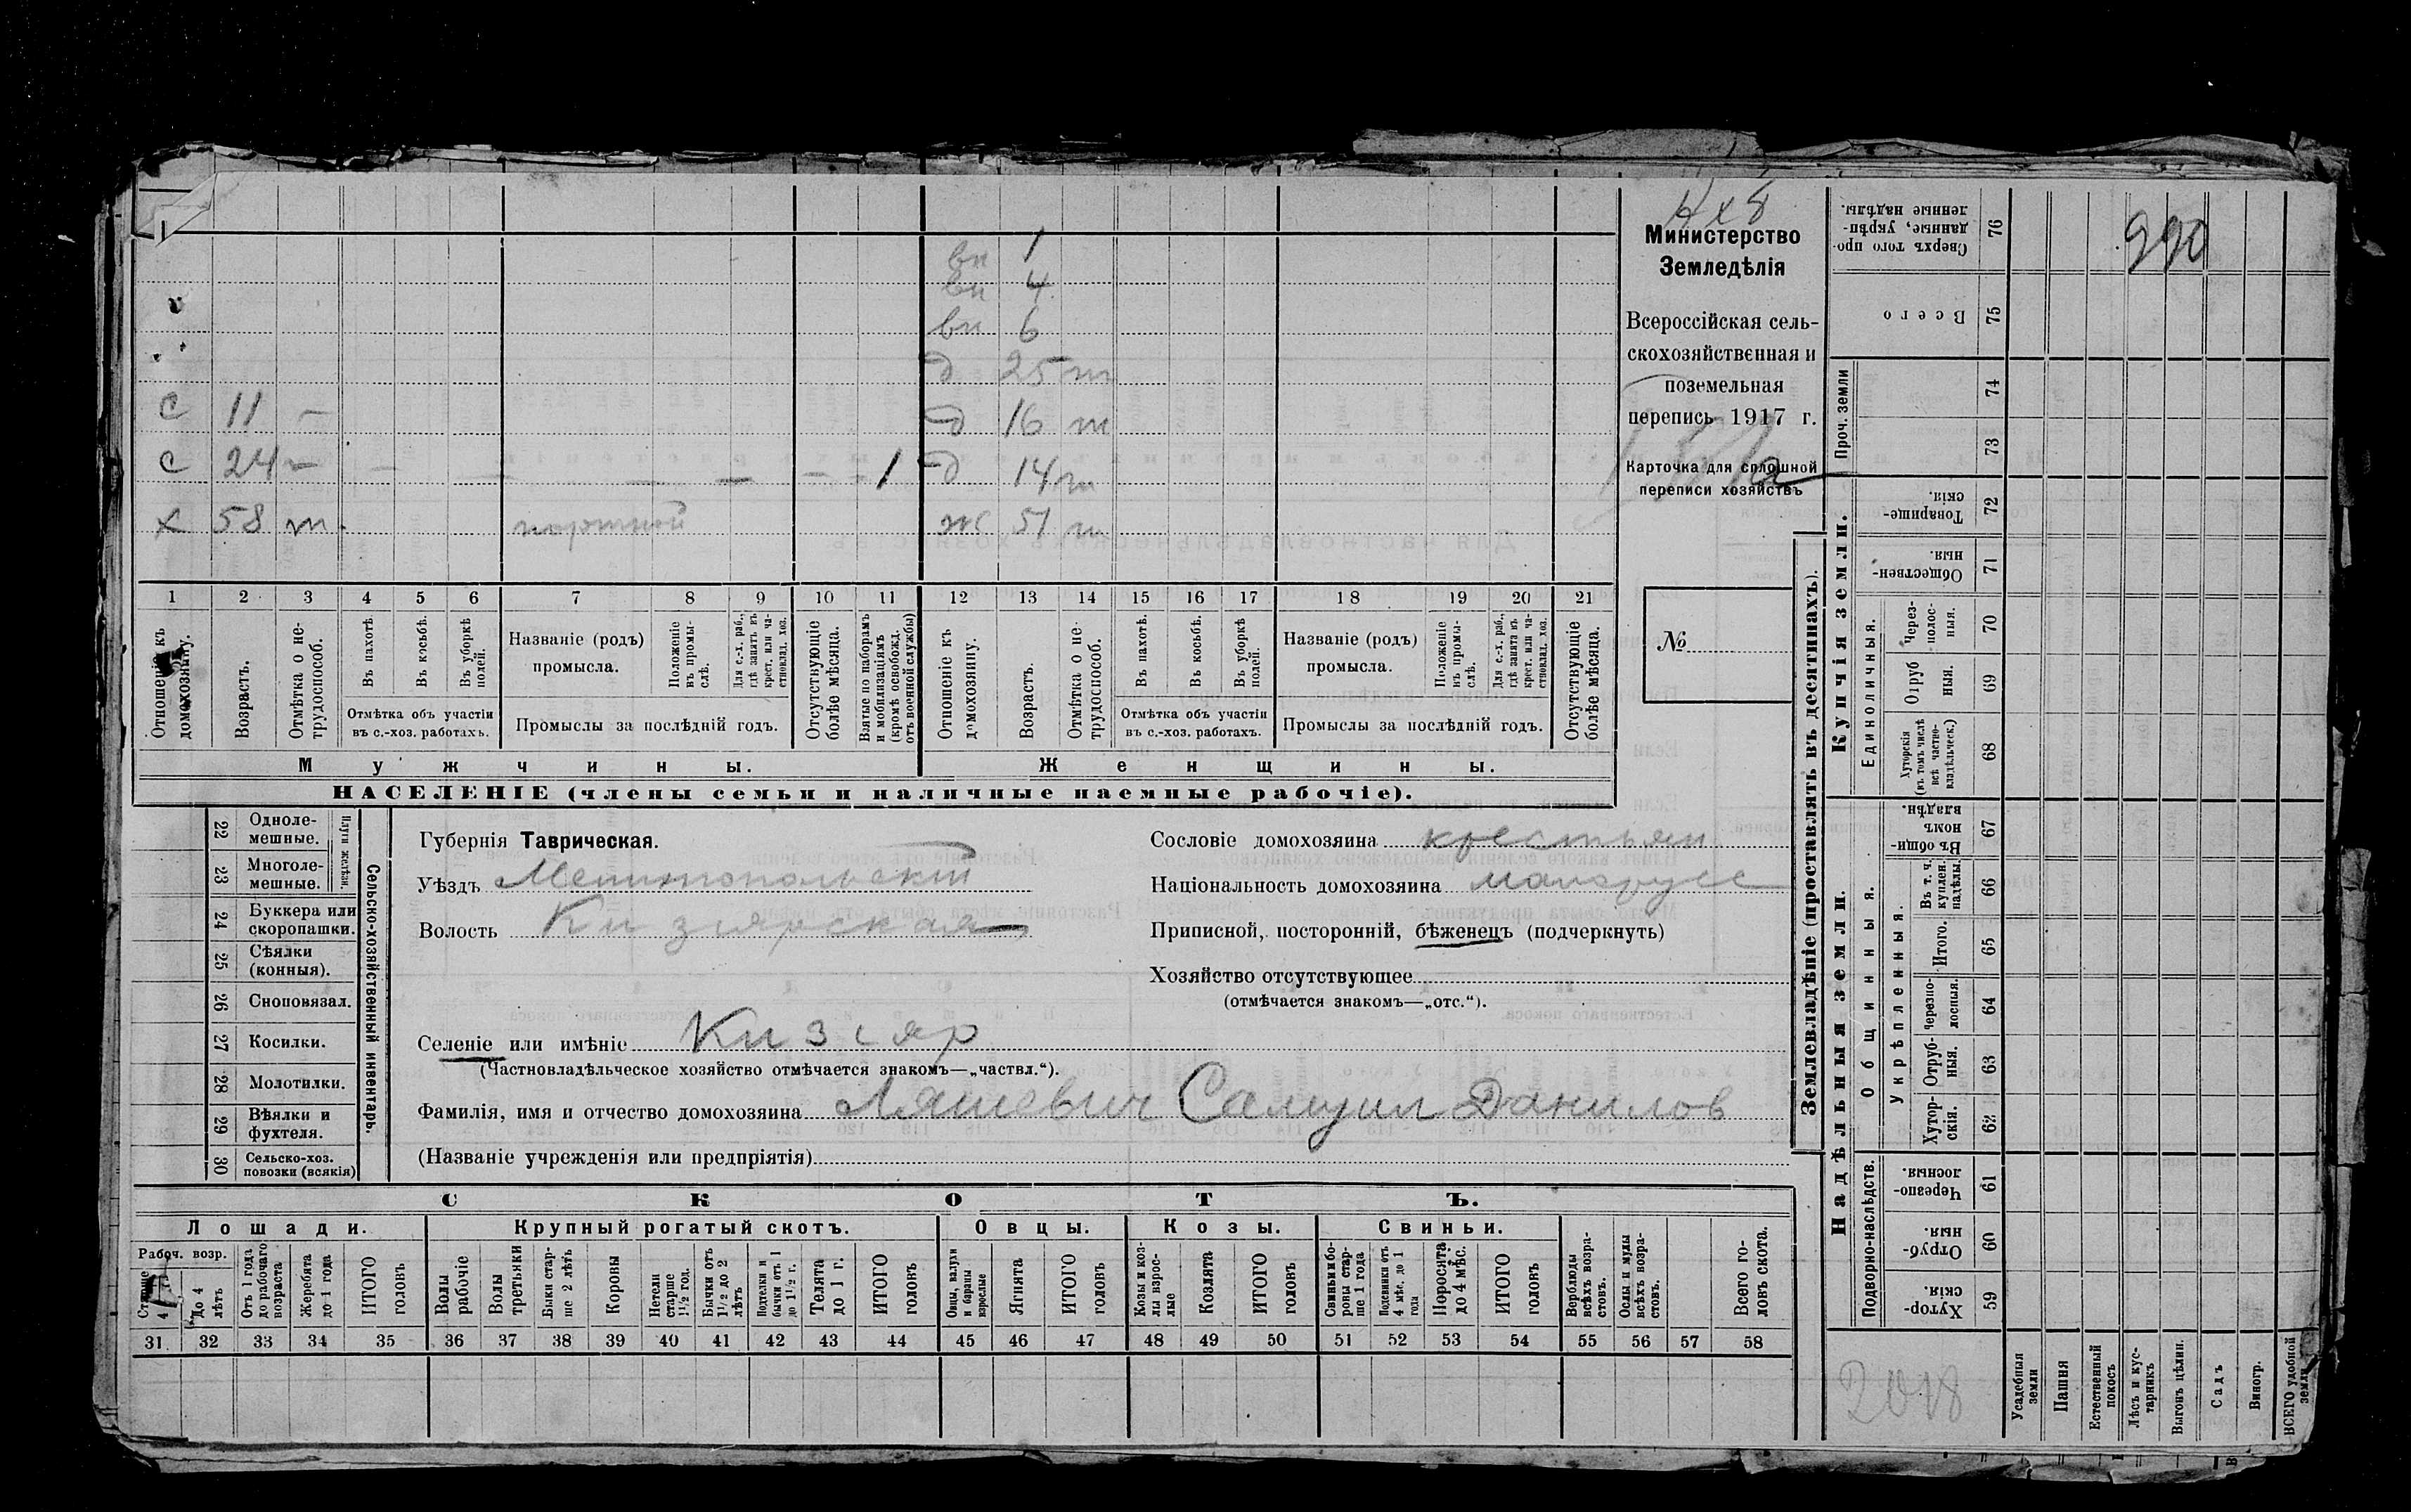 990
Министерство
Земледѣлія
Всероссійская сель-
скохозяйственная и
поземельная
перепись 1917 г.
Карточка для сплошной
переписи хозяйствъ
№
вн 1
вн 4
вн 6
д 25 т
с 11 – д 16 т
с 24 – – – – – – – 1 д 14 т
х 58 т. портной ж 51 т
1 2 3 4 5 6 7 8 9 10 11 12 13 14 15 16 17 18 19 20 21
Отношеніе къ домохозяину.
Возрастъ.
Отмѣтка о не-трудоспособ.
Въ пахотѣ.
Въ косьбѣ.
Въ уборкѣ полей.
Отмѣтка объ участіи
въ с.-хоз. работахъ.
Названіе (родъ)
промысла.
Положеніе въ промы-слѣ.
Для с.-х. раб., гдѣ занятъ въ крест. или ча-стновлад. хоз.
Промыслы за послѣдній годъ.
Отсутствующіе болѣе мѣсяца.
Взятые по наборамъ и мобилизаціямъ (кромѣ освобожд. отъ военной службы)
Отношеніе къ домохозяину.
Возрастъ.
Отмѣтка о не-трудоспособ.
Въ пахотѣ.
Въ косьбѣ.
Въ уборкѣ полей.
Отмѣтка объ участіи
въ с.-хоз. работахъ.
Названіе (родъ)
промысла.
Положеніе въ промы-слѣ.
Для с.-х. раб., гдѣ занята въ крест. или ча-стновлад. хоз.
Промыслы за послѣдній годъ.
Отсутствующіе болѣе мѣсяца.
Мужчины.
Женщины.
НАСЕЛЕНІЕ (члены семьи и наличные наемные рабочіе).
22 Одноле-мешные.
23 Многоле-мешные.
Плуги желѣзн.
24 Буккера или скоропашки.
25 Сѣялки (конныя).
26 Сноповязал.
27 Косилки.
28 Молотилки.
29 Вѣялки и фухтеля.
30 Сельско-хоз. повозки (всякія)
Сельско-хозяйственный инвентарь.
Губернія Таврическая.
Уѣздъ Мелитопольскій
Волость Кизіярская
Селеніе или имѣніе Кизіяр
(Частновладѣльческое хозяйство отмѣчается знакомъ—„частвл.“).
Фамилія, имя и отчество домохозяина Ляшевич Самуил Данилов
(Названіе учрежденія или предпріятія)
Сословіе домохозяина крестьян
Національность домохозяина малорусс
Приписной, посторонній, бѣженецъ (подчеркнуть)
Хозяйство отсутствующее
(отмѣчается знакомъ—„отс.“).
СКОТЪ.
Лошади.
Крупный рогатый скотъ.
Овцы.
Козы.
Свиньи.
Рабоч. возр.
Старше 4
До 4 лѣтъ
Отъ 1 года до рабочаго возраста
Жеребята до 1 года
ИТОГО головъ
Волы рабочіе
Волы третьяки
Быки стар-ше 2 лѣтъ
Коровы
Нетели старше 1½ год.
Бычки отъ 1½ до 2 лѣтъ
Подтелки и бычки отъ 1 до 1½ г.
Телята до 1 г.
ИТОГО головъ
Овцы, валухи и бараны взрослые
Ягнята
ИТОГО головъ
Козы и коз-лы взрос-лые
Козлята
ИТОГО головъ
Свиньи и бо-ровы стар-ше 1 года
Подсвинки отъ 4 мѣс. до 1 года
Поросята до 4 мѣс.
ИТОГО головъ
Верблюды всѣхъ возра-стовъ.
Ослы и мулы всѣхъ возра-стовъ.
Всего го-ловъ скота.
31 32 33 34 35 36 37 38 39 40 41 42 43 44 45 46 47 48 49 50 51 52 53 54 55 56 57 58
Землевладѣніе (проставлять въ десятинахъ).
Надѣльныя земли.
Купчія земли.
Проч. земли
Подворно-наслѣдств.
Общинныя.
Укрѣпленныя.
Единоличныя.
Сверхъ того про-данные, укрѣп-ленные надѣлы. 76
Всего 75
74
73
Товарище-скія. 72
Обществен-ныя. 71
Через-полос-ныя. 70
Отруб ныя. 69
Хуторскія (въ томъ числѣ всѣ частно-владѣльческ.) 68
Въ общи-номъ владѣн. 67
Въ т. ч. куплен. надѣлы. 66
Итого. 65
Черезпо-лосныя. 64
Отруб-ныя. 63
Хутор-скія. 62
Черезпо-лосныя. 61
Отруб-ныя. 60
Хутор-скія. 59
Усадебныя земли
Пашня
Естественный покосъ
Лѣсъ и кус-тарникъ
Выгонъ цѣлин.
Садъ
Виногр.
ВСЕГО удобной земли